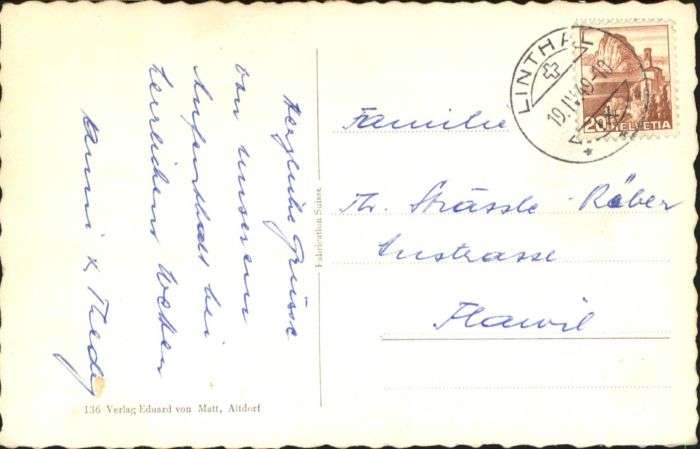 Herzliche Grüsse
von unserem
Aufenthalt bei
herrlichem Wetter
Fabrication Suisse
LINTHAL
19.IV.49-18
20
HELVETIA
Familie
Th. Strässle-Räber
Flawil
136 Verlag Eduard von Matt, Altdorf